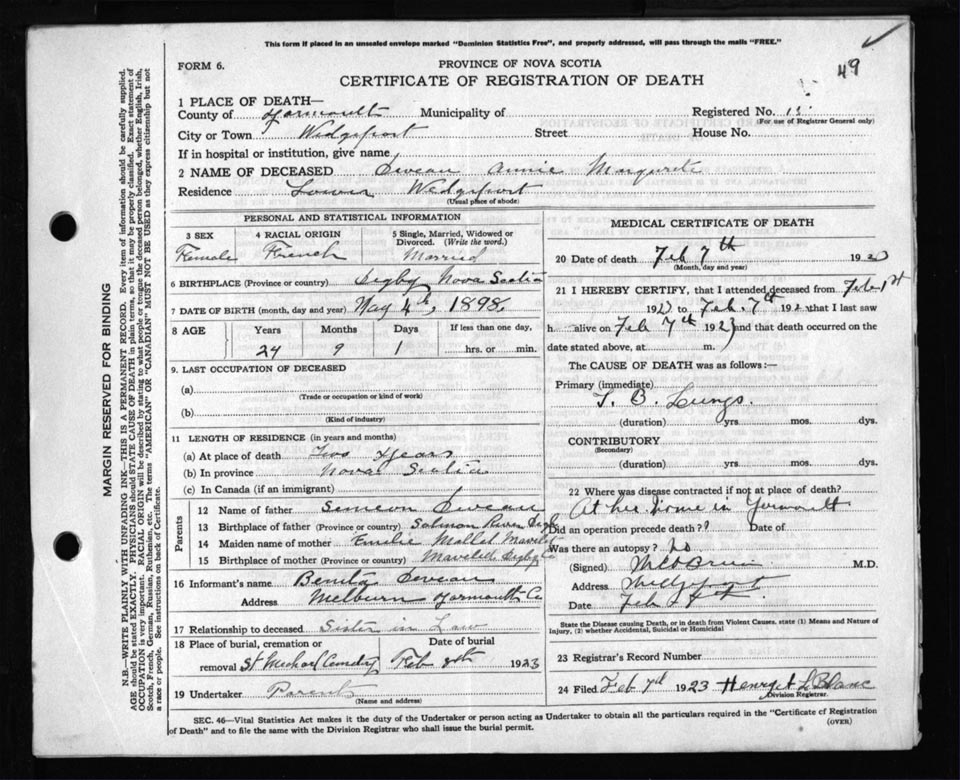 This form if placed in an unsealed envelope marked "Dominion Statistics Free", and properly addressed, will pass through the mails "FREE."
49
FORM 6.
PROVINCE OF NOVA SCOTIA
CERTIFICATE OF REGISTRATION OF DEATH
1 PLACE OF DEATH—
County of Yarmouth Municipality of Registered No. 13
(For use of Registrar General only)
City or Town Wedgeport Street House No.
If in hospital or institution, give name
2 NAME OF DECEASED Deveau Annie Margurite
Residence Lower Wedgeport
(Usual place of abode)
PERSONAL AND STATISTICAL INFORMATION
3 SEX 4 RACIAL ORIGIN 5 Single, Married, Widowed or Divorced. (Write the word.)
Female French Married
6 BIRTHPLACE (Province or country) Digby Nova Scotia
7 DATE OF BIRTH (month, day and year) May 4th, 1898
8 AGE Years Months Days If less than one day,
24 9 1 hrs. or min.
9. LAST OCCUPATION OF DECEASED
(a)
(Trade or occupation or kind of work)
(b)
(Kind of industry)
11 LENGTH OF RESIDENCE (in years and months)
(a) At place of death Two Years
(b) In province Nova Scotia
(c) In Canada (if an immigrant)
Parents
12 Name of father Simeon Deveau
13 Birthplace of father (Province or country) Salmon River Digby
14 Maiden name of mother Emilie Mallet Mavelet
15 Birthplace of mother (Province or country) Mavelett Digby
16 Informant's name Benita Deveau
Address Melburn Yarmouth Co
17 Relationship to deceased Sister in Law
18 Place of burial, cremation or removal Date of burial
St Michael Cemetry Feb 8th 1923
19 Undertaker Parents
(Name and address)
MEDICAL CERTIFICATE OF DEATH
20 Date of death Feb 7th 192
(Month, day and year)
21 I HEREBY CERTIFY, that I attended deceased from Feb 1st
192 to Feb. 7th 192 that I last saw
h alive on Feb 7th 1923 and that death occurred on
date stated above, at m.
The CAUSE OF DEATH was as follows:—
Primary (immediate)
T. B. Lungs.
(duration) yrs. mos. dys.
CONTRIBUTORY
(Secondary)
(duration) yrs. mos. dys.
22 Where was disease contracted if not at place of death?
At her home in Yarmouth
Did an operation precede death? Date of
Was there an autopsy? No
(Signed) M.D.
Address Wedgeport
Date Feb
State the Disease causing Death, or in death from Violent Causes, state (1) Means and Nature of Injury, (2) whether Accidental, Suicidal or Homicidal
23 Registrar's Record Number
24 Filed Feb 7th 1923 LeBlanc
Division Registrar.
SEC. 46—Vital Statistics Act makes it the duty of the Undertaker or person acting as Undertaker to obtain all the particulars required in the "Certificate of Registration
of Death" and to file the same with the Division Registrar who shall issue the burial permit.
(OVER)
MARGIN RESERVED FOR BINDING
N.B.—WRITE PLAINLY WITH UNFADING INK—THIS IS A PERMANENT RECORD. Every item of information should be carefully supplied.
AGE should be stated EXACTLY. PHYSICIANS should STATE CAUSE OF DEATH in plain terms, so that it may be properly classified. Exact statement of
OCCUPATION is very important. RACIAL ORIGIN will be described by stating to what people or tongue the deceased person belonged, whether English, Irish,
Scotch, French, German, Russian, Ruthenian, etc. The terms "AMERICAN" OR "CANADIAN" MUST NOT BE USED as they express citizenship but not
a race or people. See instructions on back of Certificate.